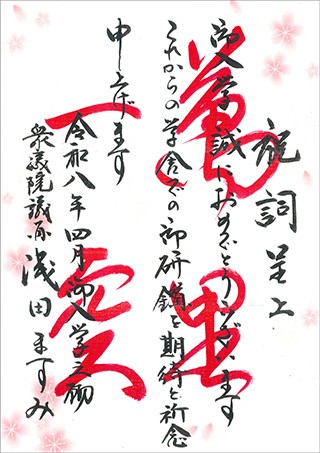 祝詞呈上
御入学誠におめでとうございます
これからの学舎での御研鑽を期待と祈念
申し上げます
令和八年四月御入学之砌
衆議院議員 浅田ますみ
萬里一空